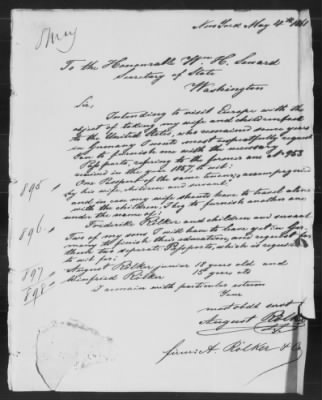 New York May 4th 1861
To the Honourable Wm H. Seward
Secretary of State
Washington
Sir,
Intending to visit Europe with the
object of taking my wife and children back
to the United States, who remained some years
in Germany I most respectfully request
you to furnish me with the necessary
Passports, referring to the former one No 953
received in the year 1857, to wit:
895. One Passport of the same tenor, accompanied
by his wife children and servant.
and in case my wife should have to travel alone
with the children. Pls to furnish another one
under the name of:
896. Friederike Rölker and children and servant
Two of my sons I will have to leave yet in Ger-
many to finish their education, and request for
them two separate Passports, which is requested
to wit for:
897. August Rölker junior 18 years old and
898. Winfried Rölker 15 years old
I remain with particular esteem
Your
most obdt servt
August Rölker
firm: A. Rölker & Co